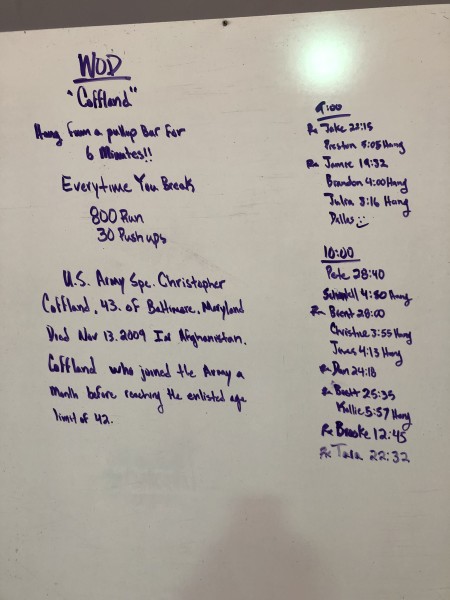 WOD
"Coffland"
Hang from a pullup Bar For
6 Minutes!!
Everytime You Break
800 Run
30 Push ups
U.S. Army Spc. Christopher
Coffland, 43. of Baltimore, Maryland
Died Nov 13. 2009 In Afghanistan.
Coffland who joined the Army a
month before reaching the enlisted age
limit of 42.
9:00
Rx Jake 22:15
Preston 5:05 Hang
Rx Jamie 19:32
Brandon 4:00 Hang
Julia 3:16 Hang
Dallas
10:00
Pete 28:40
4:50 Hang
Rx Brent 28:00
Christine 3:55 Hang
James 4:13 Hang
Rx Dan 24:18
Rx Brett 25:35
Kallie 5:57 Hang
Rx Brooke 12:45
Rx Tara 22:32